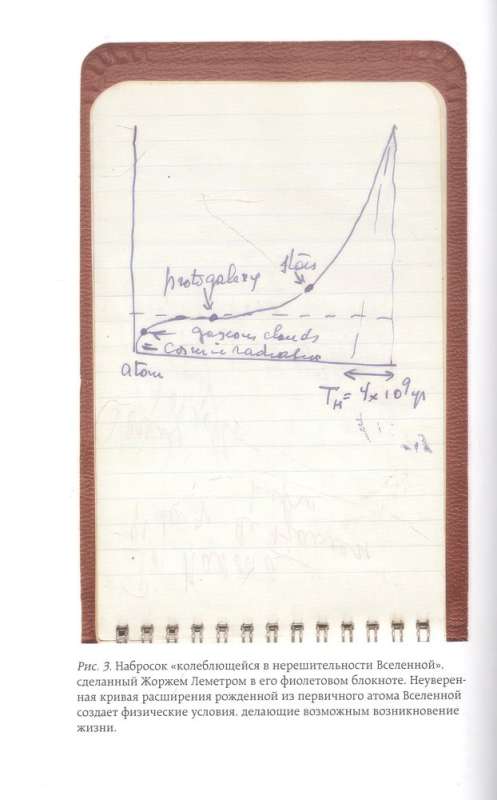 stars
protogalaxy
gaseous clouds
cosmic radiation
atom
T_H = 4 x 10^9 yr
Рис. 3. Набросок «колеблющейся в нерешительности Вселенной»,
сделанный Жоржем Леметром в его фиолетовом блокноте. Неуверен-
ная кривая расширения рожденной из первичного атома Вселенной
создает физические условия, делающие возможным возникновение
жизни.